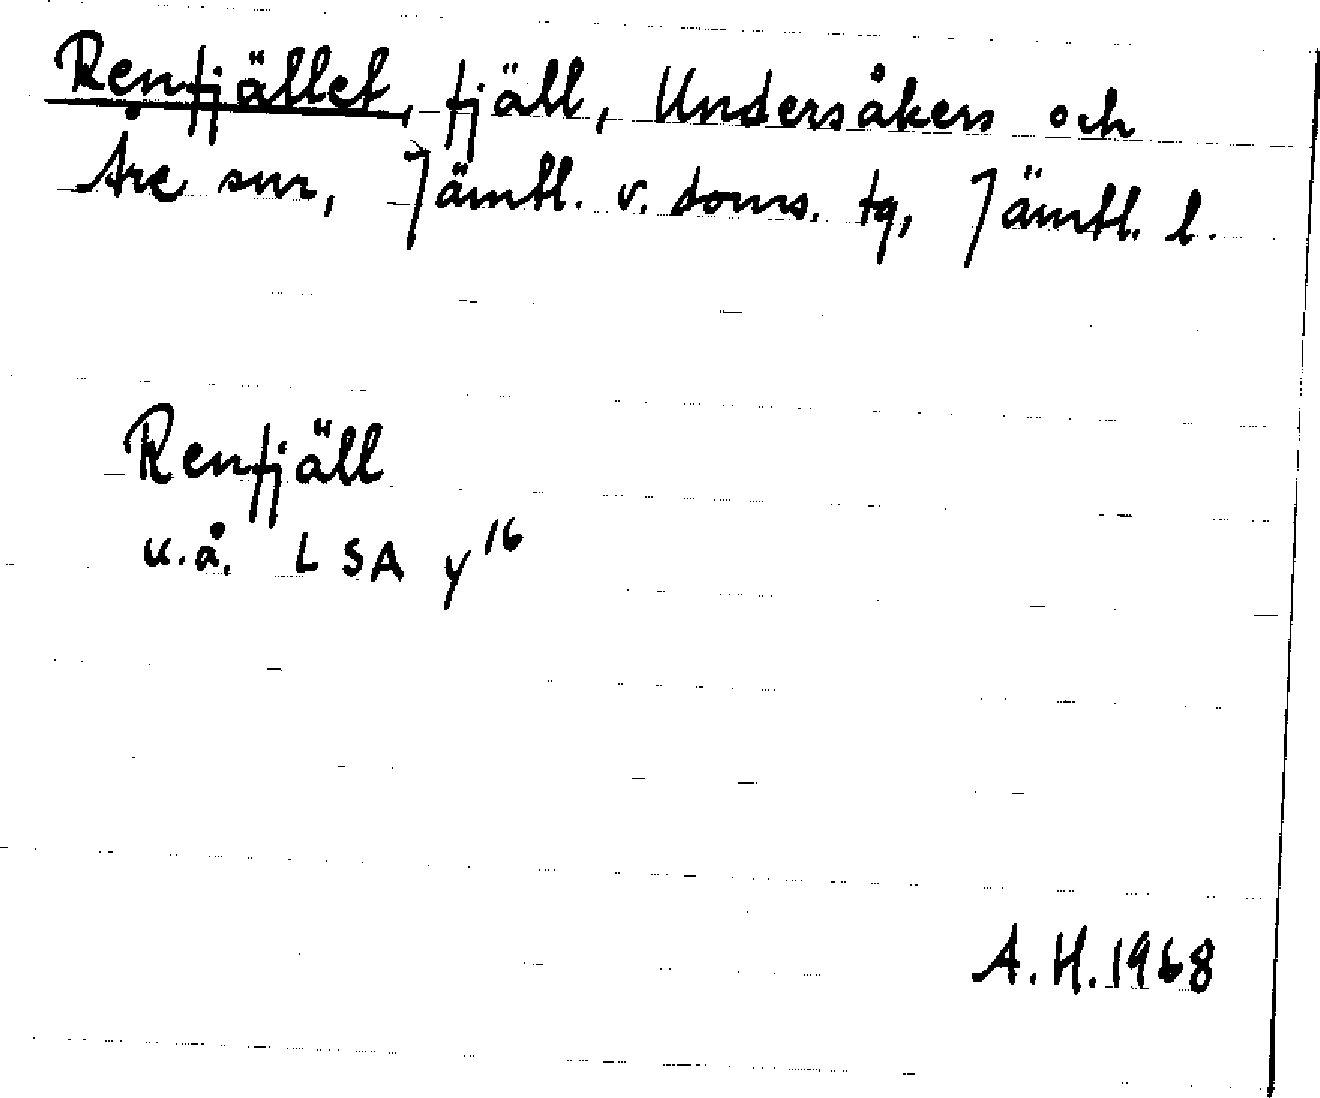 Renfjället, fjäll, Undersåkers och
Åre snr, Jämtl. v. doms. tg, Jämtl. l.
Renfjäll
u.å. LSA y16
A.H. 1968